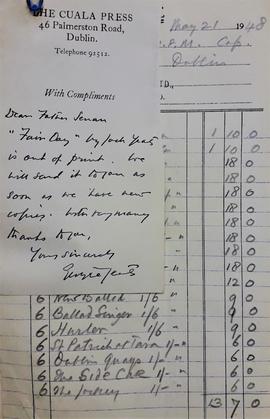 THE CUALA PRESS
46 Palmerston Road,
Dublin.
Telephone 92512.
With Compliments
Dear Father Senan
"Fair Day" by Jack Yeats
is out of print. We
will send it to you as
soon as we have new
copies. With very many
thanks to you,
Yours sincerely
May 21 1948
Dublin
TD.,
1 10 0
1 10 0
18 0
18 0
18 0
18 0
18 0
12 0
6 New Ballad 1/6 " 9 0
6 Ballad Singer 1/6 " 9 0
6 Hurler 1/6 " 9 0
6 St Patrick at Tara 1/- " 6 0
6 Dublin Quays 1/- " 6 0
6 The Side Car 1/- " 6 0
6 The Jockey 1/- " 6 0
13 7 0